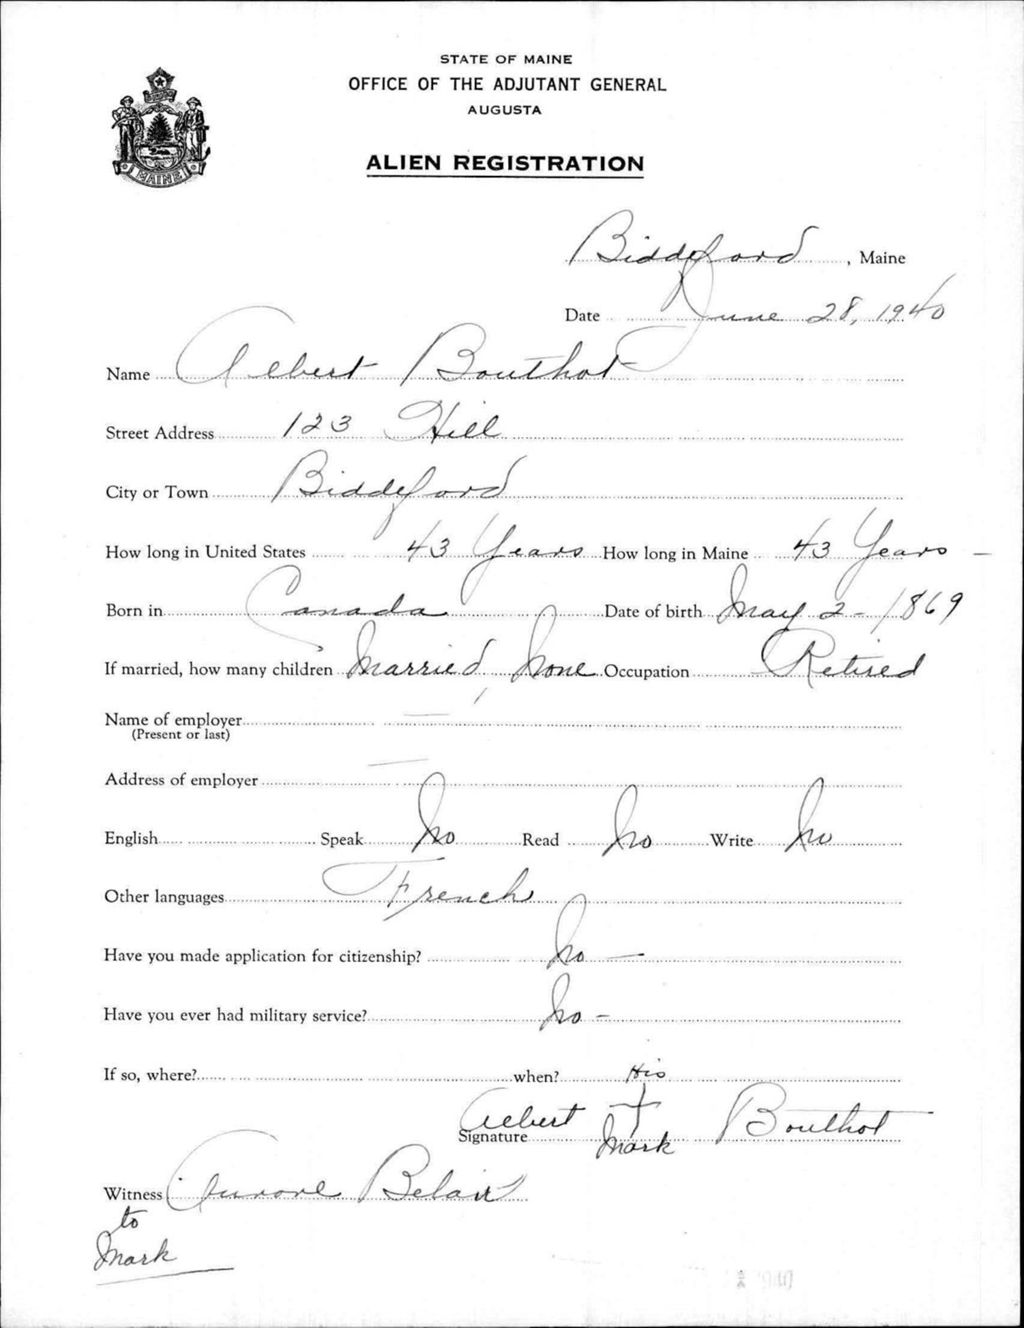 STATE OF MAINE
OFFICE OF THE ADJUTANT GENERAL
AUGUSTA
ALIEN REGISTRATION
MAINE
Biddeford, Maine
Date June 28, 1940
Name Albert Bouthot
Street Address 123 Hill
City or Town Biddeford
How long in United States 43 Years How long in Maine 43 Years -
Born in Canada Date of birth May 2 - 1869
If married, how many children Married, None Occupation Retired
Name of employer —
(Present or last)
Address of employer —
English Speak No Read No Write No
Other languages French
Have you made application for citizenship? No —
Have you ever had military service? No -
If so, where? when?
His
Signature Albert + Bouthot
Mark
Witness Aurore Belair
to
Mark